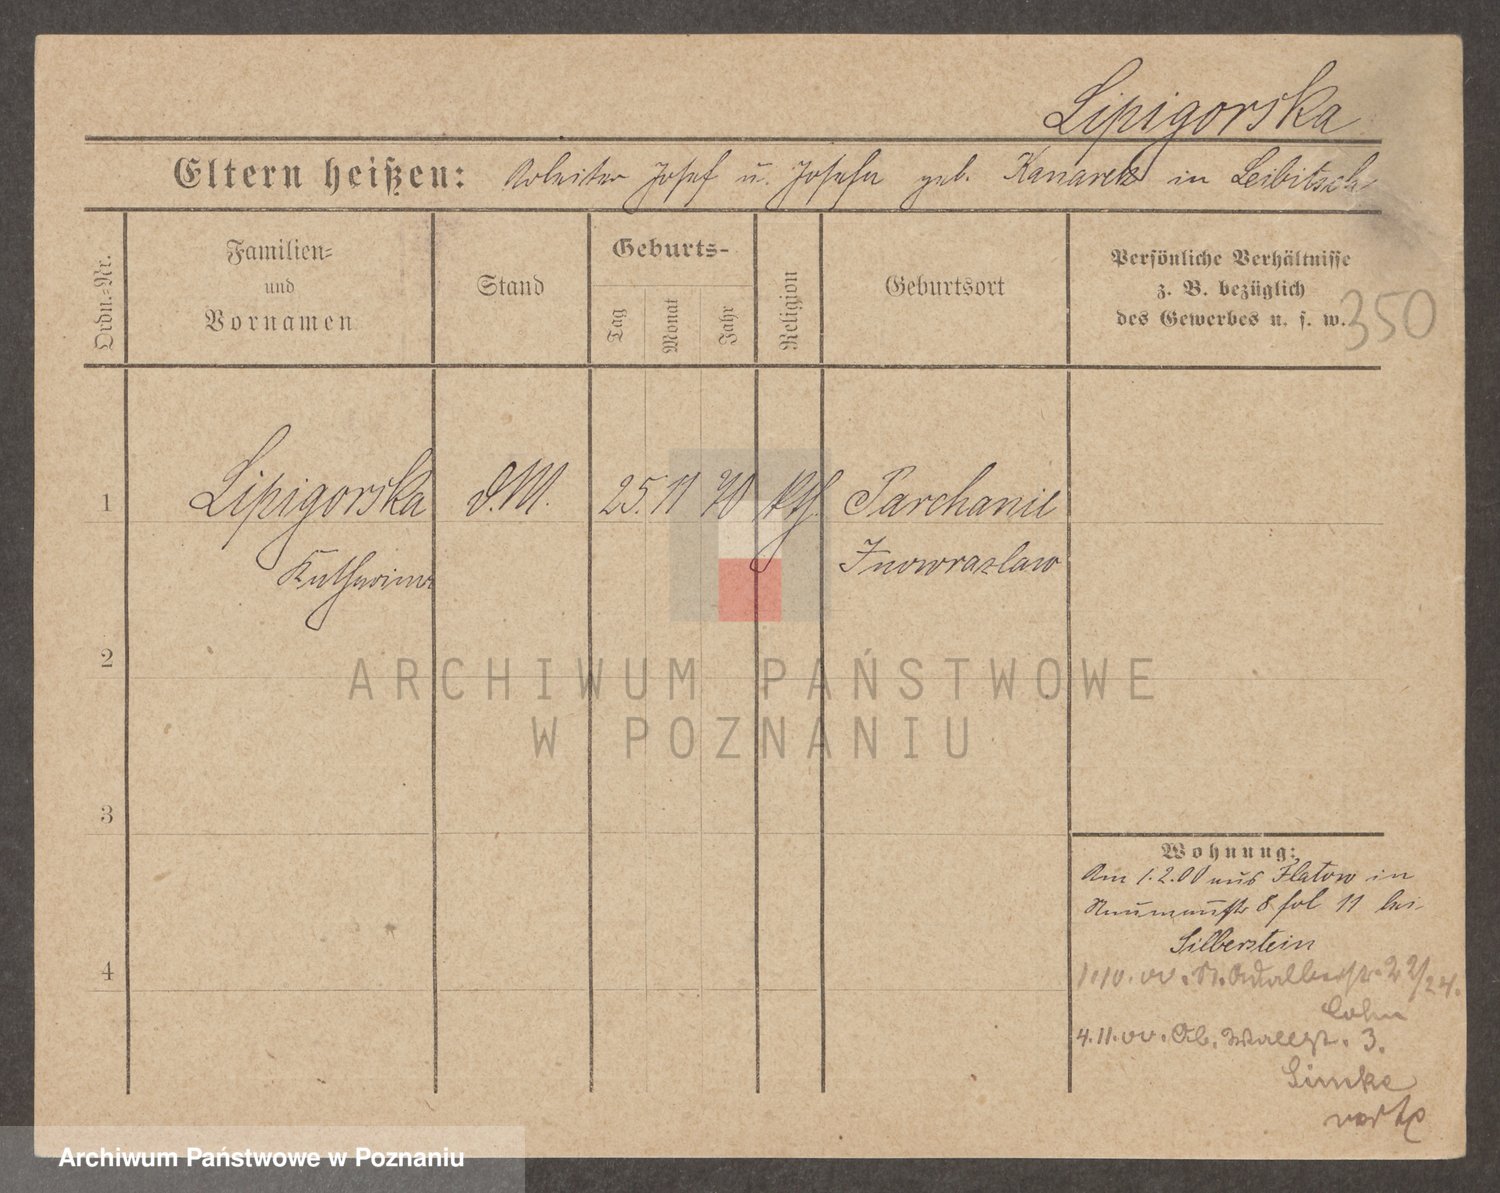 Lipigorska
Eltern heißen: Arbeiter Josef u. Josefa geb. Kanarek in Leibitsch
Ordn.-Nr.
Familien-
und
Vornamen
Stand
Geburts-
Tag
Monat
Jahr
Religion
Geburtsort
Persönliche Verhältnisse
z. B. bezüglich
des Gewerbes u. s. w.
350
1
Lipigorska D.M. 25. 11 70 kth. Parchanie
Katharina Inowrazlaw
2
ARCHIWUM PAŃSTWOWE
W POZNANIU
3
Wohnung:
Am 1.2.00 aus Flatow in
Naumannstr 8 fol 11 bei
Silberstein
1.10.00. St. Adalbertstr. 22/24.
Cohn
4.11.00. Ob. Wallstr. 3.
4
Simke
Archiwum Państwowe w Poznaniu